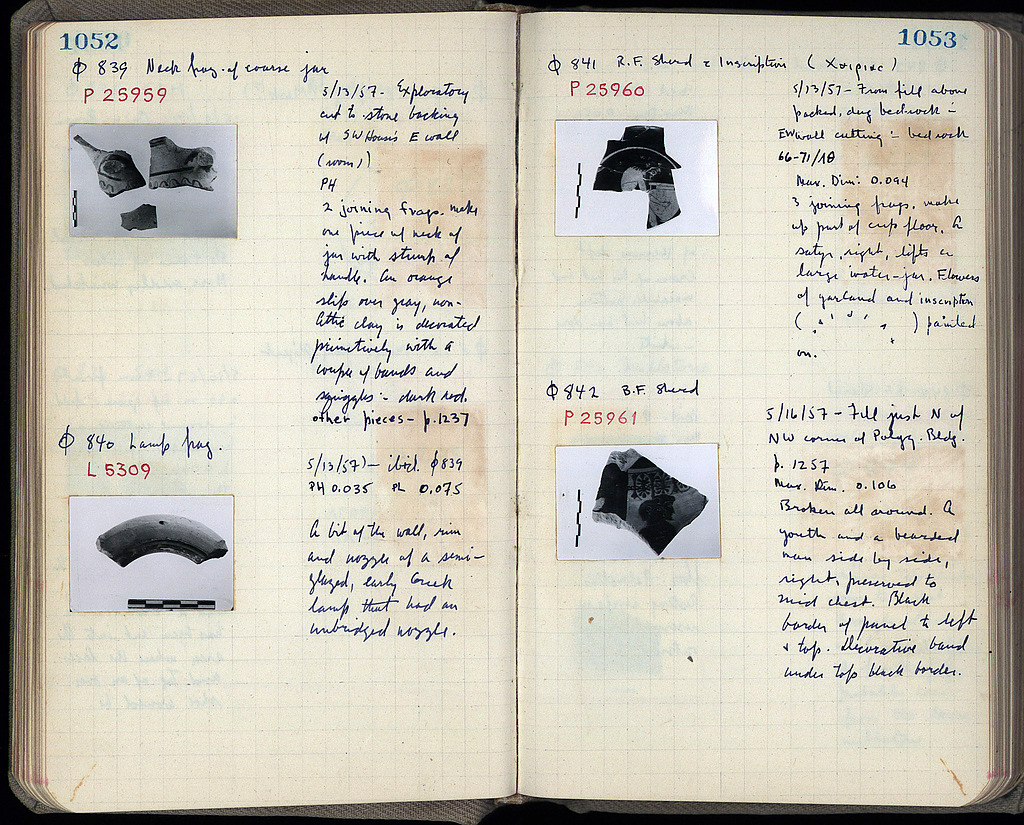 1052
Φ 839 Neck frag. of coarse jar
P 25959
5/13/57 - Exploratory
cut to stone backing
of SW House's E wall
(room 1)
PH
2 joining frags. make
one piece of neck of
jar with stump of
handle. An orange
slip over gray, non-
Attic clay is decorated
primitively with a
couple of bands and
squiggles :- dark red.
other pieces - p. 1237
Φ 840 Lamp frag.
L 5309
5/13/57) - ibid. Φ839
PH 0.035 PL 0.075
A bit of the wall, rim
and nozzle of a semi-
glazed, early Greek
lamp that had an
unbridged nozzle.
1053
Φ 841 R.F. Sherd c Inscription (Χοιριας)
P 25960
5/13/57 - From fill above
packed, dug bedrock -
EW wall cutting - bedrock
66-71/ΛΘ
Max. Dim: 0.094
3 joining frags. make
up part of cup floor. A
satyr, right, lifts a
large water-jar. Flowers
of garland and inscription
( ) painted
on.
Φ 842 B.F. Sherd
P 25961
5/16/57 - Fill just N of
NW corner of Polyg. Bldg.
p. 1257
Max. Dim. 0.106
Broken all around. A
youth and a bearded
man side by side,
right, preserved to
mid chest. Black
border of panel to left
+ top. Decorative band
under top black border.